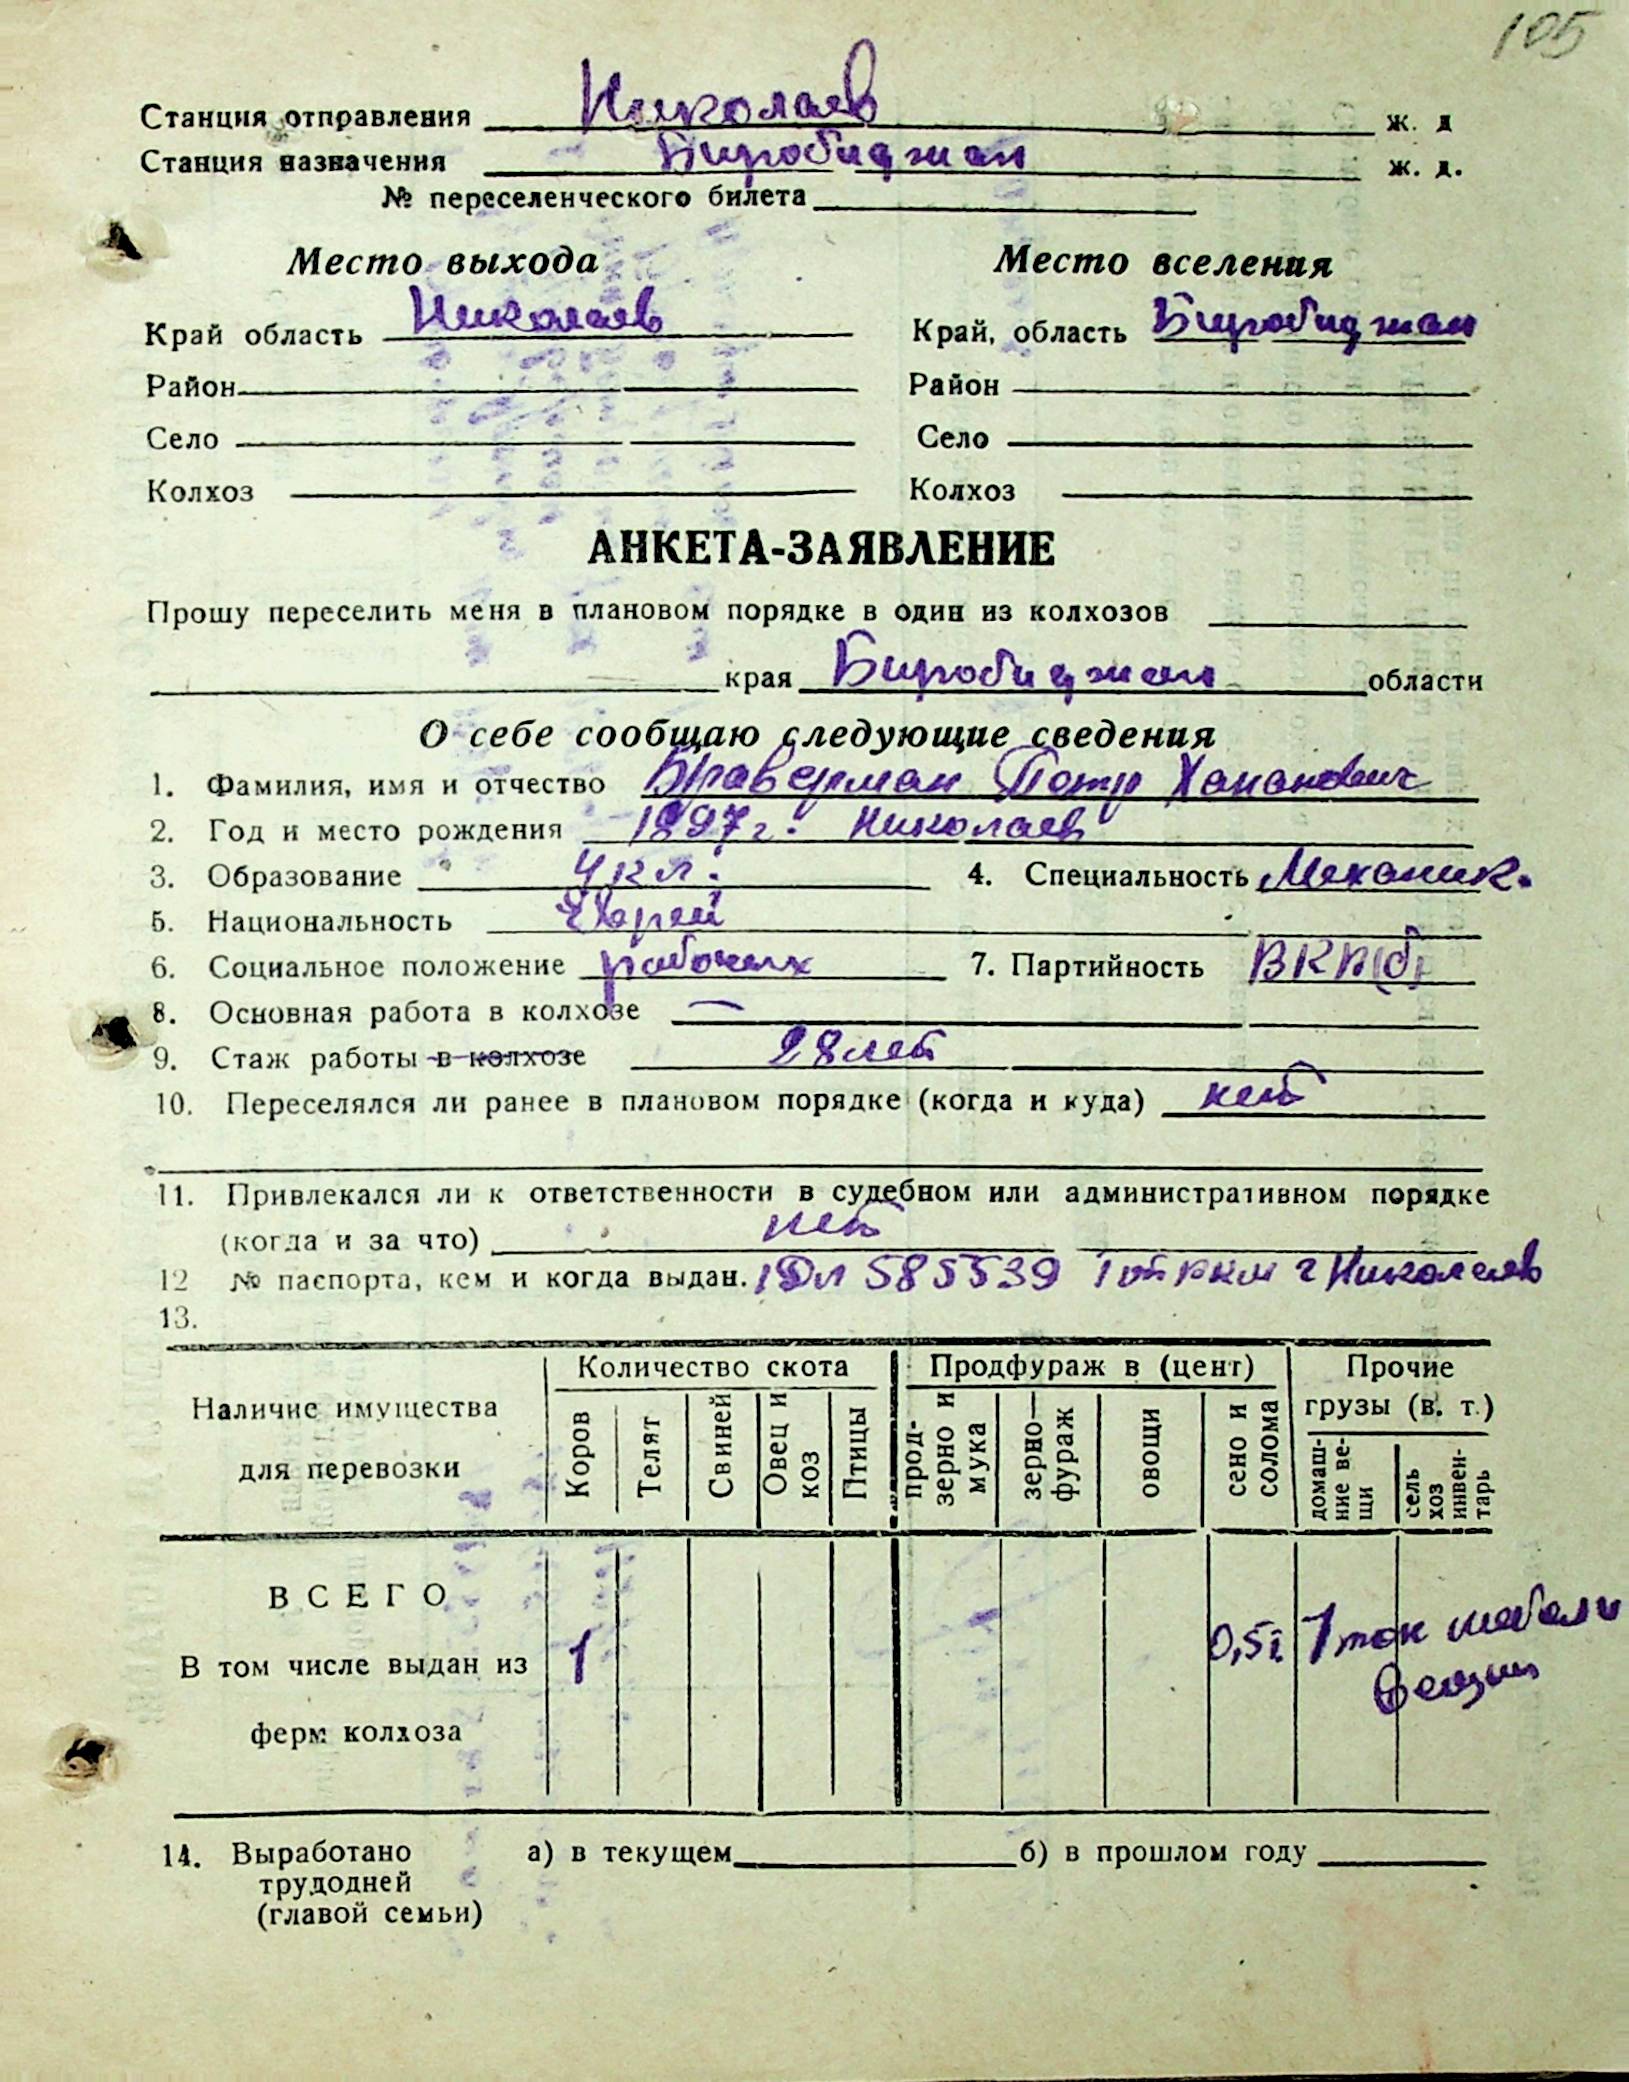 105
Станция отправления Николаев ж. д
Станция назначения Биробиджан ж. д.
№ переселенческого билета
Место выхода Место вселения
Край область Николаев Край, область Биробиджан
Район Район
Село Село
Колхоз Колхоз
АНКЕТА-ЗАЯВЛЕНИЕ
Прошу переселить меня в плановом порядке в один из колхозов
края Биробиджан области
О себе сообщаю следующие сведения
1. Фамилия, имя и отчество Браверман Петр Хананович
2. Год и место рождения 1897 г. Николаев
3. Образование 4 кл. 4. Специальность Механик.
5. Национальность Еврей
6. Социальное положение рабочих 7. Партийность ВКП(б)
8. Основная работа в колхозе —
9. Стаж работы в колхозе 28 лет
10. Переселялся ли ранее в плановом порядке (когда и куда) нет
11. Привлекался ли к ответственности в судебном или административном порядке
(когда и за что) нет
12 № паспорта, кем и когда выдан. 585539 1 от РКМ г Николаев
13.
Наличие имущества для перевозки Количество скота Продфураж в (цент) Прочие грузы (в. т.)
Коров Телят Свиней Овец и коз Птицы прод-зерно и мука зерно-фураж овощи сено и солома домаш-ние ве-щи сель хоз инвен-тарь
ВСЕГО
В том числе выдан из 1 0,5т 1 тон мебели
вещи
ферм колхоза
14. Выработано а) в текущем б) в прошлом году
трудодней
(главой семьи)